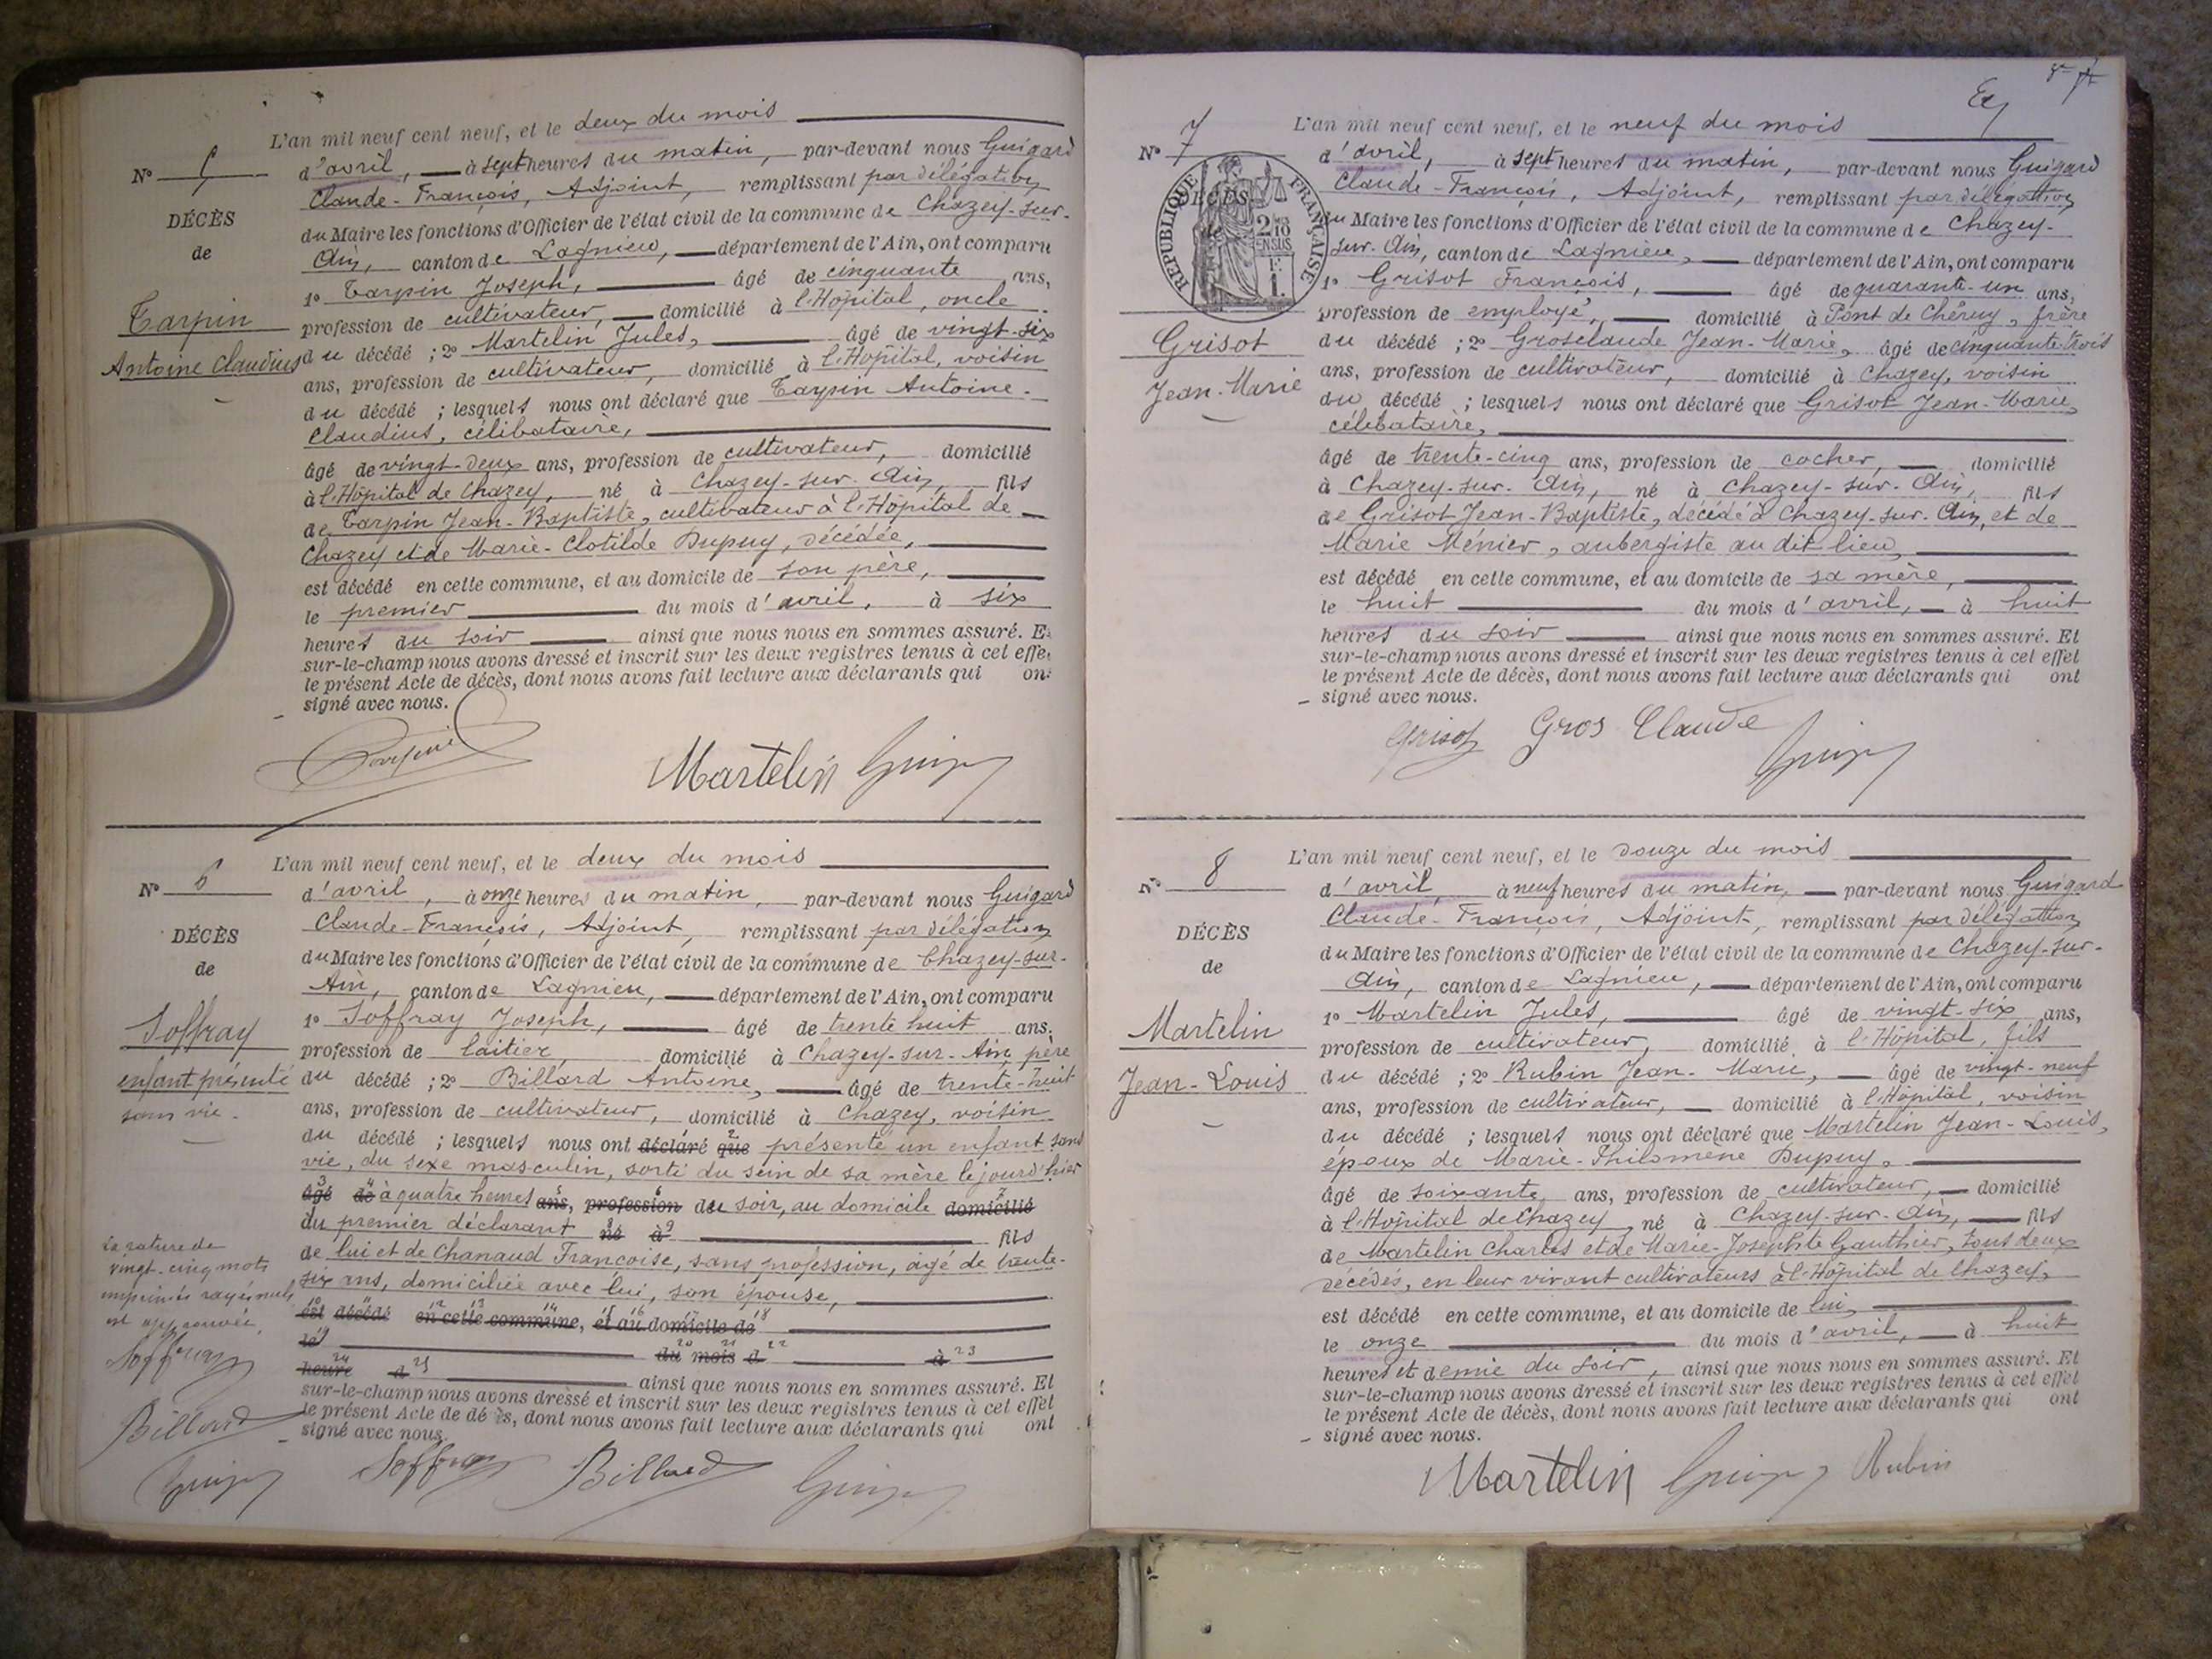 L'an mil neuf cent neuf, et le deux du mois
N° 5
d'avril, à sept heures du matin, par-devant nous Guigard
Claude-François, Adjoint, remplissant par délégation
DÉCÈS
du Maire les fonctions d'Officier de l'état civil de la commune de Chazey-sur-
de
Ain, canton de Lagnieu, département de l'Ain, ont comparu
1° Tarpin Joseph, âgé de cinquante ans,
Tarpin
profession de cultivateur, domicilié à l'Hôpital, oncle
Antoine Claudius
du décédé ; 2° Martelin Jules, âgé de vingt-six
ans, profession de cultivateur, domicilié à l'Hôpital, voisin
du décédé ; lesquels nous ont déclaré que Tarpin Antoine-
Claudius, célibataire,
âgé de vingt-deux ans, profession de cultivateur, domicilié
à l'Hôpital de Chazey, né à Chazey-sur-Ain, fils
de Tarpin Jean-Baptiste, cultivateur à l'Hôpital de
Chazey et de Marie-Clotilde Dupuy, décédée,
est décédé en cette commune, et au domicile de son père,
le premier du mois d'avril, à six
heures du soir ainsi que nous nous en sommes assuré. E
sur-le-champ nous avons dressé et inscrit sur les deux registres tenus à cet effe
le présent Acte de décès, dont nous avons fait lecture aux déclarants qui on
signé avec nous.
Martelin
L'an mil neuf cent neuf, et le deux du mois
N° 6
d'avril, à onze heures du matin, par-devant nous Guigard
Claude-François, Adjoint, remplissant par délégation
DÉCÈS
du Maire les fonctions d'Officier de l'état civil de la commune de Chazey-sur-
de
Ain, canton de Lagnieu, département de l'Ain, ont comparu
1° Soffray Joseph, âgé de trente huit ans.
Soffray
profession de laitier, domicilié à Chazey-sur-Ain, père
enfant présenté
du décédé ; 2° Billard Antoine, âgé de trente-huit
sans vie.
ans, profession de cultivateur, domicilié à Chazey, voisin
du décédé ; lesquels nous ont déclaré que présenté un enfant sans
vie, du sexe masculin, sorti du sein de sa mère le jour d'hier
âgé de à quatre heures ans, profession du soir, au domicile domicilié
du premier déclarant né à fils
de lui et de Chanaud Françoise, sans profession, âgé de trente-
six ans, domiciliée avec lui, son épouse,
La rature de
vingt-cinq mots
imprimés rayés nuls
est approuvée.
est décédé en cette commune, et au domicile de
le du mois d à
heure d ainsi que nous nous en sommes assuré. Et
sur-le-champ nous avons dressé et inscrit sur les deux registres tenus à cet effet
le présent Acte de dé ès, dont nous avons fait lecture aux déclarants qui ont
signé avec nous.
Soffray
Billard
Soffray Billard
L'an mil neuf cent neuf, et le neuf du mois
N° 7
d'avril, à sept heures du matin, par-devant nous Guigard
Claude-François, Adjoint, remplissant par délégation
DÉCÈS
RÉPUBLIQUE FRANÇAISE
du Maire les fonctions d'Officier de l'état civil de la commune de Chazey-
sur-Ain, canton de Lagnieu, département de l'Ain, ont comparu
1° Grisot François, âgé de quarante-un ans,
profession de employé, domicilié à Pont de Chéruy, frère
Grisot
du décédé ; 2° Grosclaude Jean-Marie, âgé de cinquante-trois
Jean-Marie
ans, profession de cultivateur, domicilié à Chazey, voisin
du décédé ; lesquels nous ont déclaré que Grisot Jean-Marie,
célibataire,
âgé de trente-cinq ans, profession de cocher, domicilié
à Chazey-sur-Ain, né à Chazey-sur-Ain, fils
de Grisot Jean-Baptiste, décédé à Chazey-sur-Ain, et de
Marie Ménier, aubergiste au dit lieu,
est décédé en cette commune, et au domicile de sa mère,
le huit du mois d'avril, à huit
heures du soir ainsi que nous nous en sommes assuré. Et
sur-le-champ nous avons dressé et inscrit sur les deux registres tenus à cet effet
le présent Acte de décès, dont nous avons fait lecture aux déclarants qui ont
signé avec nous.
Grisot Gros Claude
L'an mil neuf cent neuf, et le douze du mois
N° 8
d'avril, à neuf heures du matin, par-devant nous Guigard
Claude-François, Adjoint, remplissant par délégation
DÉCÈS
du Maire les fonctions d'Officier de l'état civil de la commune de Chazey-sur-
de
Ain, canton de Lagnieu, département de l'Ain, ont comparu
1° Martelin Jules, âgé de vingt-six ans,
Martelin
profession de cultivateur, domicilié à l'Hôpital, fils
Jean-Louis
du décédé ; 2° Rubin Jean-Marie, âgé de vingt-neuf
ans, profession de cultivateur, domicilié à l'Hôpital, voisin
du décédé ; lesquels nous ont déclaré que Martelin Jean-Louis,
époux de Marie-Philomène Dupuy,
âgé de soixante ans, profession de cultivateur, domicilié
à l'Hôpital de Chazey, né à Chazey-sur-Ain, fils
de Martelin Charles et de Marie-Josephte Gauthier, tous deux
décédés, en leur vivant cultivateurs à l'Hôpital de Chazey,
est décédé en cette commune, et au domicile de lui,
le onze du mois d'avril, à huit
heures et demie du soir, ainsi que nous nous en sommes assuré. Et
sur-le-champ nous avons dressé et inscrit sur les deux registres tenus à cet effet
le présent Acte de décès, dont nous avons fait lecture aux déclarants qui ont
signé avec nous.
Martelin Rubin